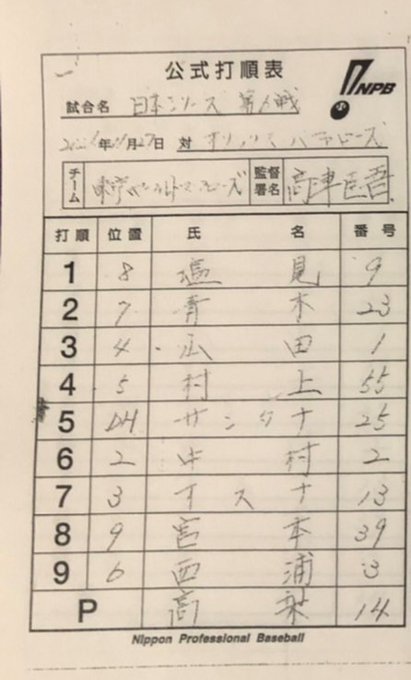 公式打順表
NPB
試合名 日本シリーズ 第6戦
2021年11月27日 対 オリックス・バファローズ
チーム 東京ヤクルトスワローズ 監督署名 高津臣吾
打順 位置 氏名 番号
1 8 塩見 9
2 7 青木 23
3 4 山田 1
4 5 村上 55
5 DH サンタナ 25
6 2 中村 2
7 3 オスナ 13
8 9 宮本 39
9 6 西浦 3
P 高梨 14
Nippon Professional Baseball